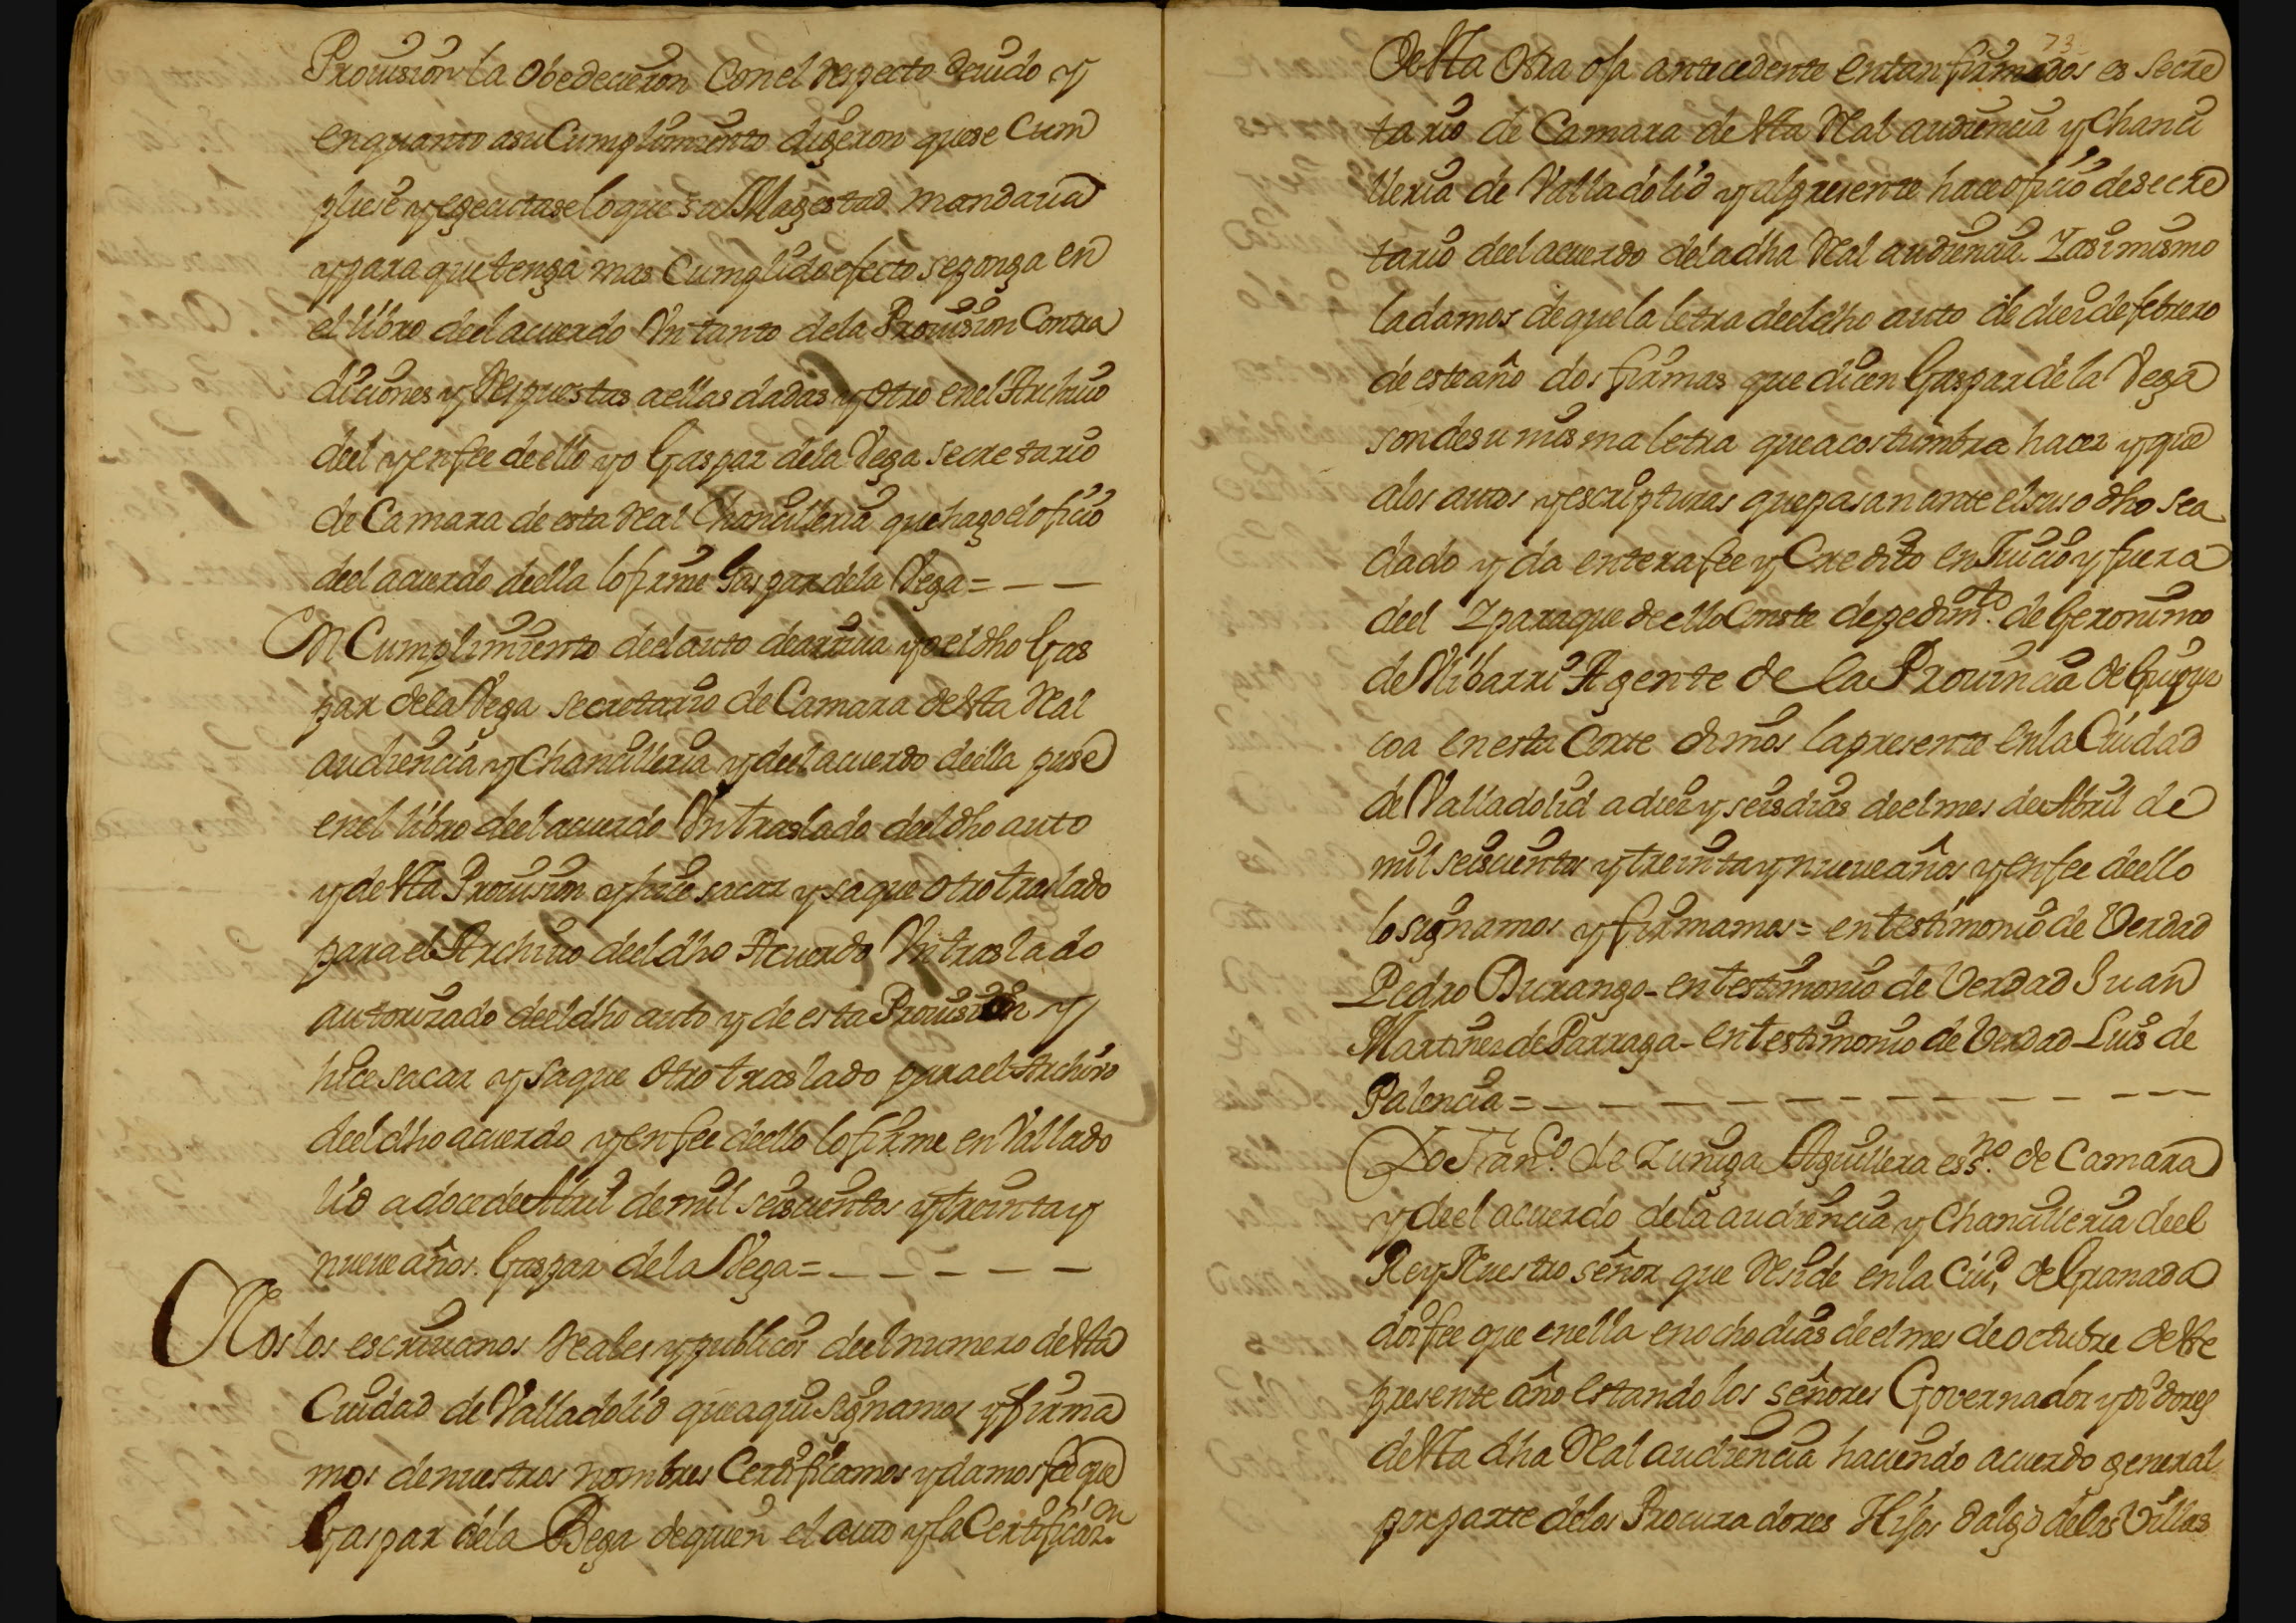 Prouision la obedecieron Con el respecto deuido y
en quanto a su Cumplimiento dixeron que se Cum
pliese y executase lo que su Magestad mandaua
y para que tenga mas Cumplido efecto se ponga en
el libro deel acuerdo Vn tanto de la Prouision Contra
diciones y Respuestas a ellas dadas y otro en el Archiuo
deel y en fee de ello yo Gaspar de la Vega secretario
de Camara de esta Real Chancilleria que hago el oficio
deel acuerdo deella lo firme Gaspar de la Vega = — —
En Cumplimiento deel auto de arriua yo el dho Gas
par de la Vega secretario de Camara desta Real
audiencia y Chancilleria y deel acuerdo deella puse
en el libro deel acuerdo Vn traslado deel dho auto
y desta Prouision y hice sacar y saque otro traslado
para el Archiuo deel dho Acuerdo Vn traslado
autorizado deel dho auto y de esta Prouision y
hice sacar y saque otro traslado para el Archivo
deel dho acuerdo y en fee deello lo firme en Vallado
lid a doce de Abril de mil seiscientos y treinta y
nueue años. Gaspar de la Vega = — — — — —
Nos los escriuanos Reales y publicos deel numero desta
Ciudad de Valladolid que aqui signamos y firma
mos de nuestros nombres Certificamos y damos fee que
Gaspar de la Vega de quien el auto y la Certificaz.on
73
desta otra oja antecedente entan firmados es secre
tario de Camara desta Real audiencia y Chanci
lleria de Valladolid y al presente hace oficio de secre
tario deel acuerdo de la dha Real audiencia. Y asi mismo
la damos de que la letra deel dho auto de diez de febrero
de este año dos firmas que dicen Gaspar de la Vega
son de su misma letra que acostumbra hacer y que
a los autos y escripturas que pasan ante el suso dho se a
dado y da entera fee y Credito en Juicio y fuera
deel Y para que de ello Conste de pedim.to de Geronimo
de Vlibarri Agente de la Prouincia de Guipuz
coa en esta Corte dimos la presente en la Ciudad
de Valladolid a diez y seis dias deel mes de Abril de
mil seiscientos y treinta y nueue años y en fee deello
lo signamos y firmamos = en testimonio de Verdad
Pedro Durango – en testimonio de Verdad Juan
Martinez de Parraga – en testimonio de Verdad Luis de
Palencia = — — — — — — — — — — — —
Yo Fran.co de Zuniga Aguillera ess.no de Camara
y deel acuerdo de la audiencia y Chancilleria deel
Rey Nuestro señor que Reside en la Ciu.d de Granada
doi fee que en ella en ocho dias de el mes de octubre deste
presente año estando los señores Governador y oidores
desta dha Real audiencia haciendo acuerdo general
por parte de los Procuradores Hijos dalgo de las Villas